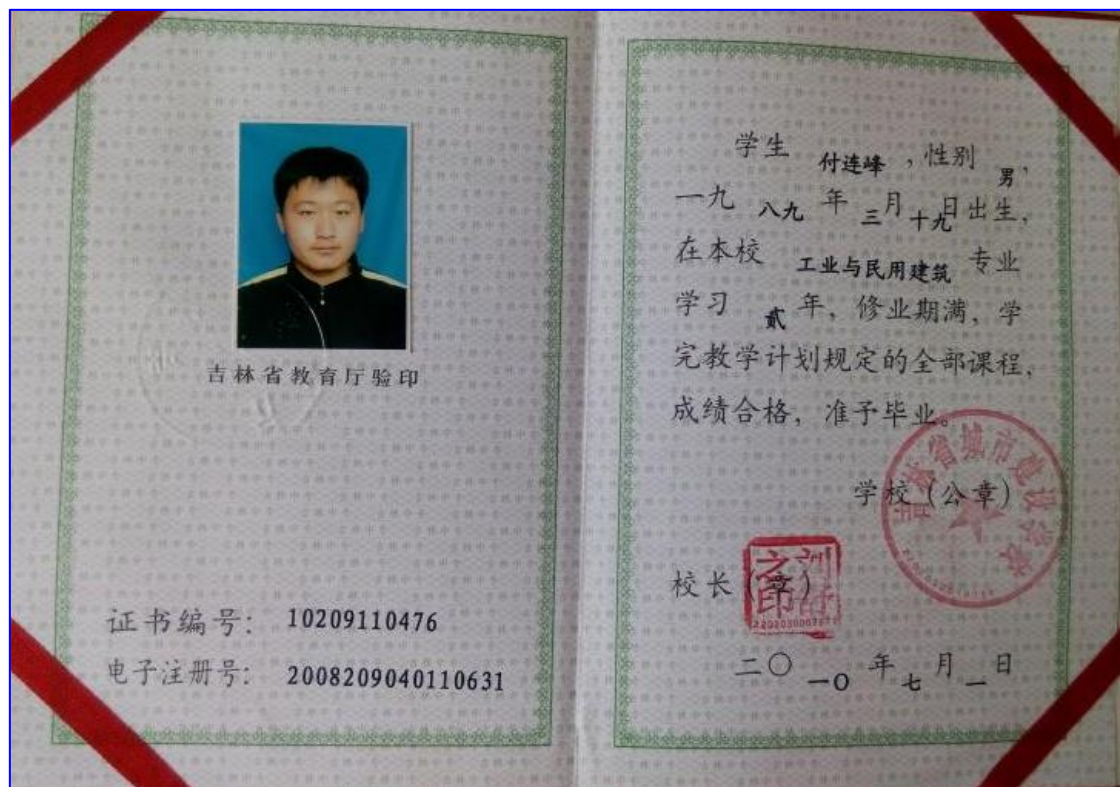 吉林省教育厅验印
证书编号: 10209110476
电子注册号: 2008209040110631
学生 付连峰 ,性别 男,
一九 八九 年 三月 十九日出生,
在本校 工业与民用建筑 专业
学习 贰 年, 修业期满, 学
完教学计划规定的全部课程,
成绩合格, 准予毕业。
学校 (公章)
吉林省城市建设学校
校长 (章)
之印
二〇一〇 年 七 月 一 日